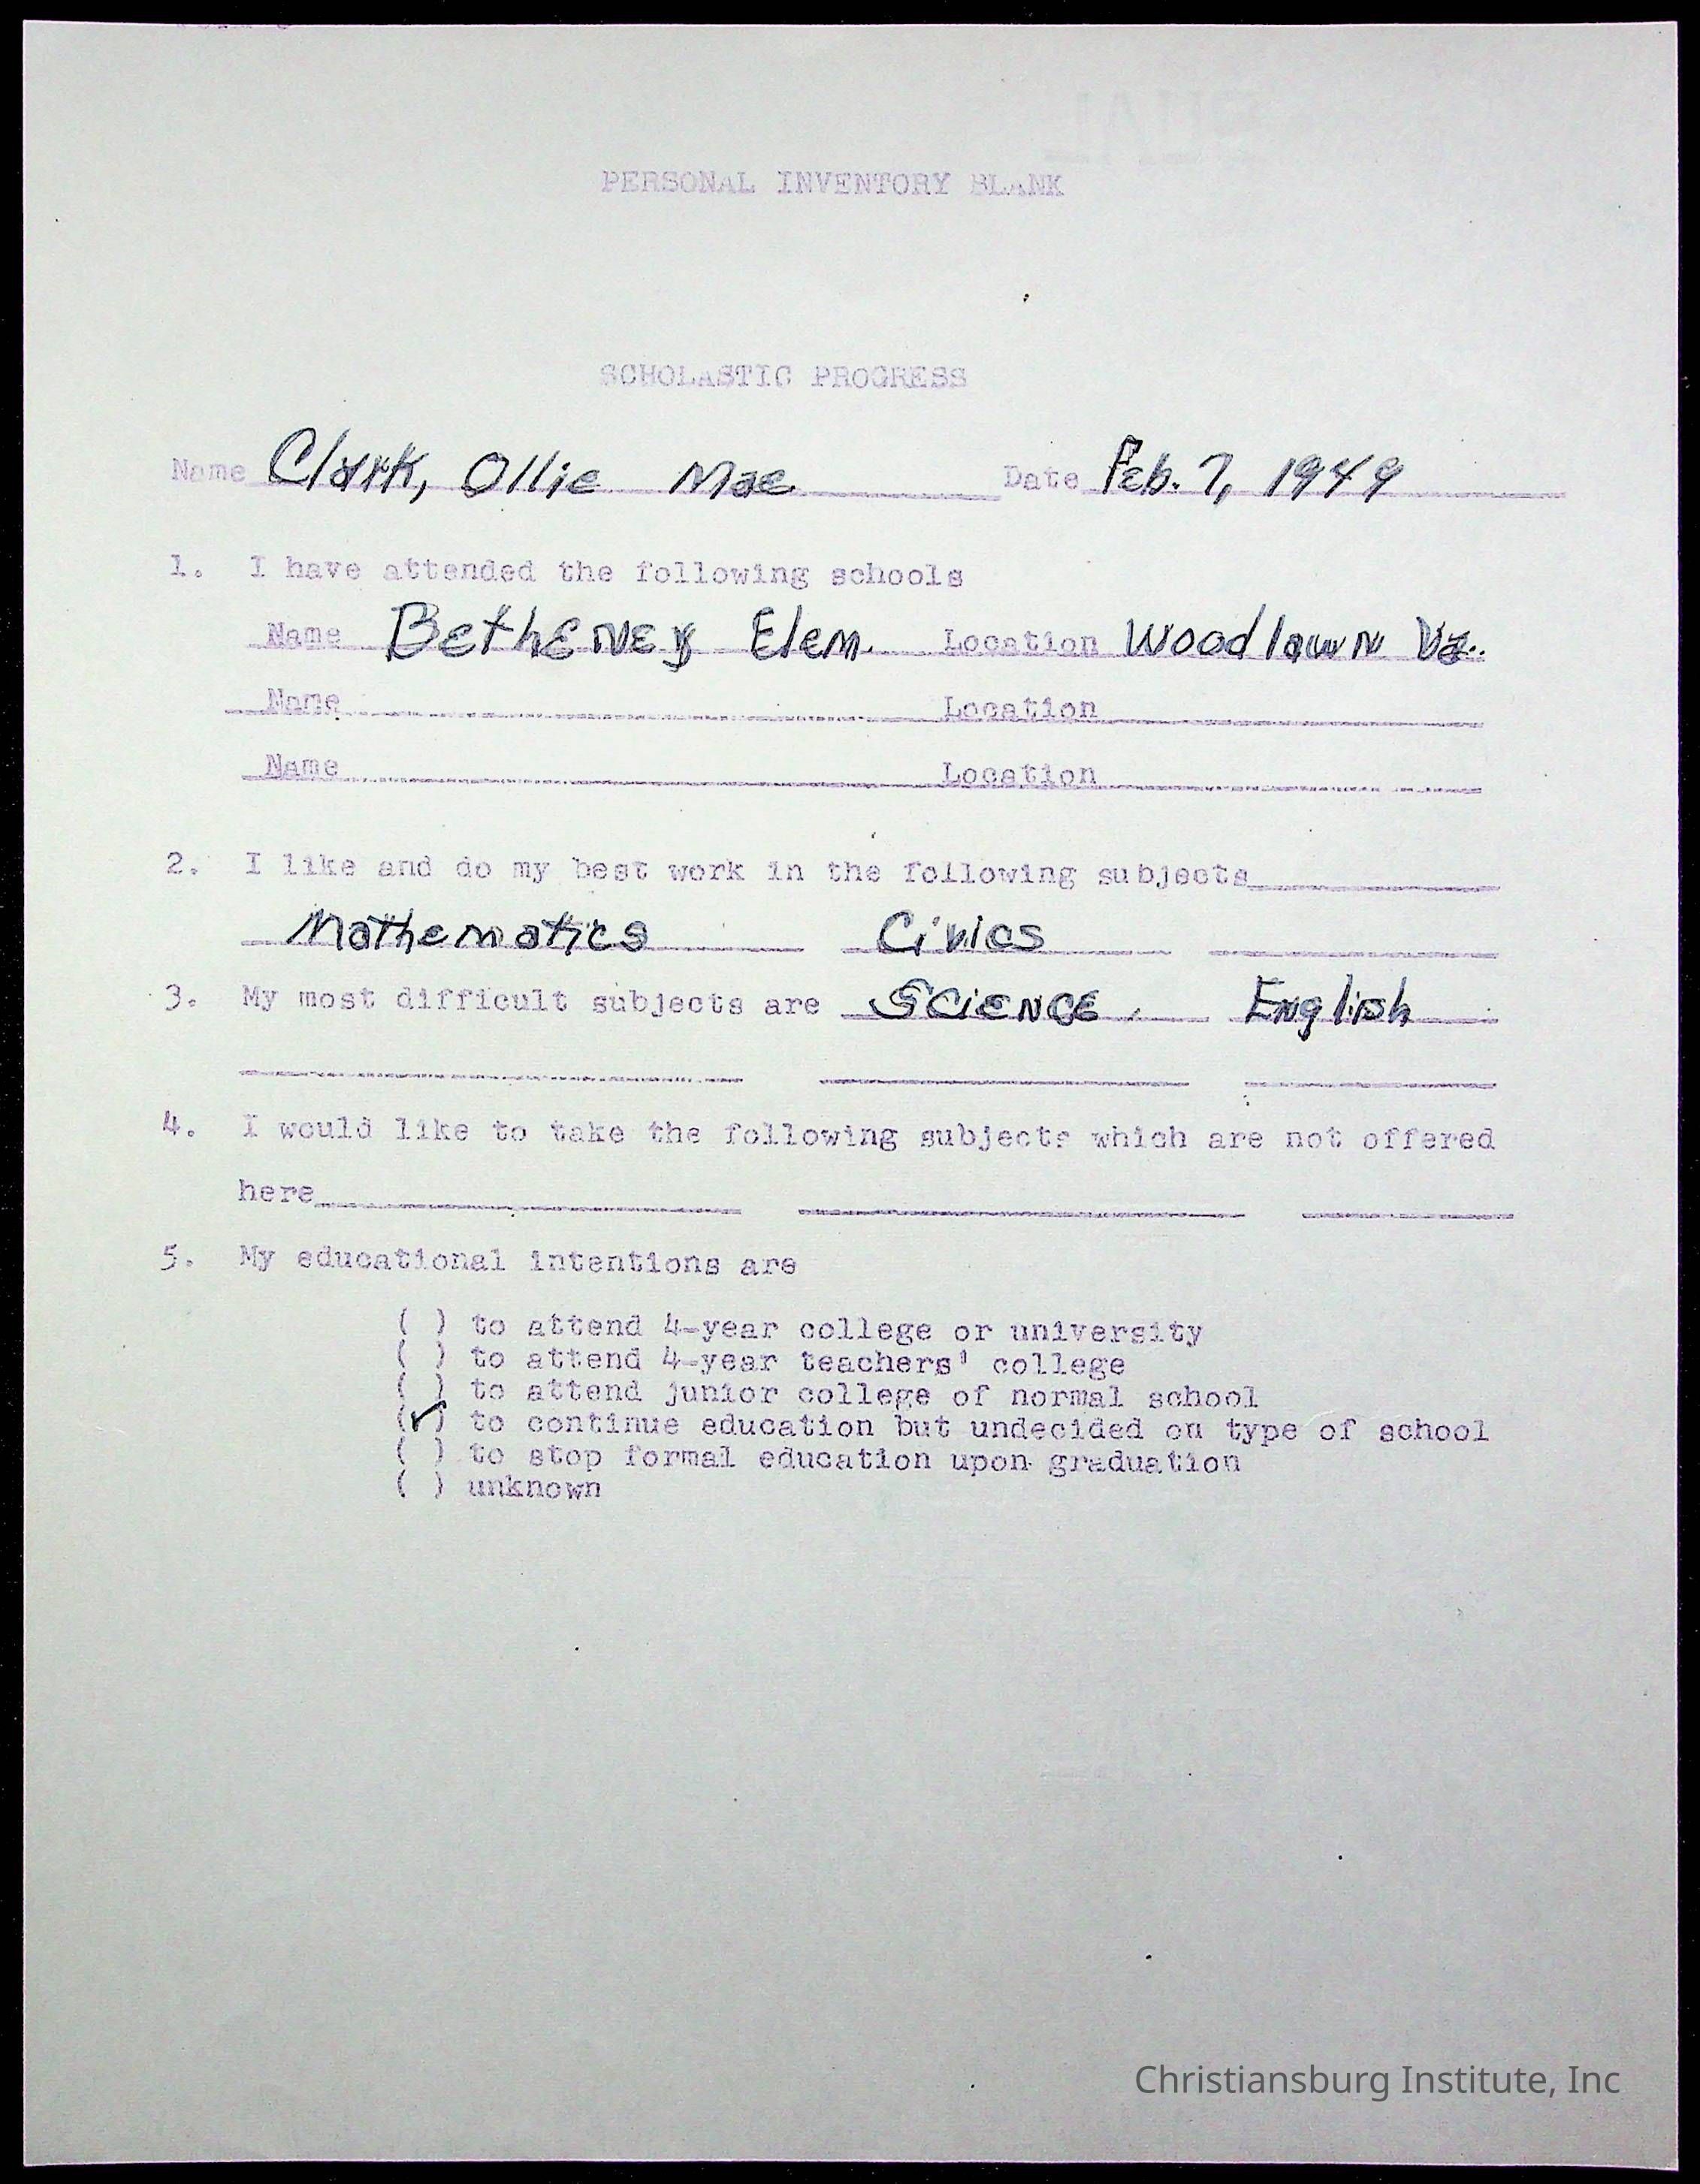 PERSONAL INVENTORY BLANK
SCHOLASTIC PROGRESS
Name Clark, Ollie Mae Date Feb. 7, 1949
1. I have attended the following schools
Name Betheney Elem. Location Woodlawn Va.
Name Location
Name Location
2. I like and do my best work in the following subjects
Mathematics Civics
3. My most difficult subjects are Science, English
4. I would like to take the following subjects which are not offered
here
5. My educational intentions are
( ) to attend 4-year college or university
( ) to attend 4-year teachers' college
( ) to attend junior college of normal school
(✓) to continue education but undecided on type of school
( ) to stop formal education upon graduation
( ) unknown
Christiansburg Institute, Inc